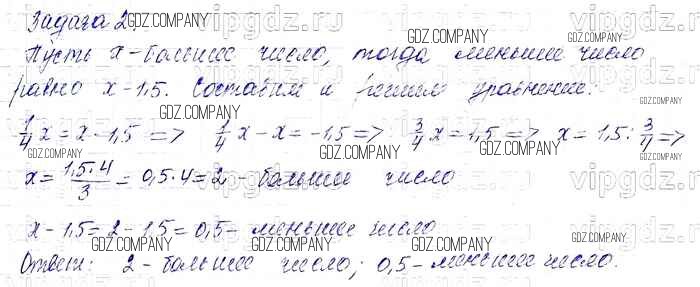 Задача 2.
Пусть x - большее число, тогда меньшее число
равно x - 1,5. Составим и решим уравнение:
1/4 x = x - 1,5 => 1/4 x - x = -1,5 => 3/4 x = 1,5 => x = 1,5 : 3/4 =>
x = 1,5·4/3 = 0,5·4 = 2 - большее число
x - 1,5 = 2 - 1,5 = 0,5 - меньшее число
Ответ: 2 - большее число; 0,5 - меньшее число.
GDZ.COMPANY
vipgdz.ru